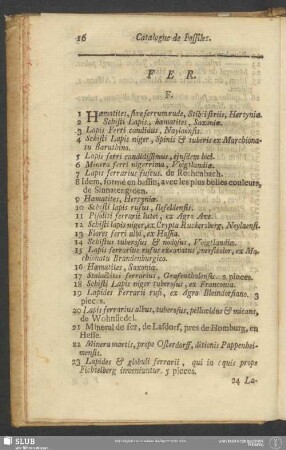 16 Catalogue de Fossiles.
F E R.
F.
1 Hæmatites, sive ferrum rude, Stibii striis, Hercyniæ.
2 Schisti Lapis, hæmatites, Saxoniæ.
3 Lapis Ferri candidus,
4 Schisti Lapis niger, spinis & tuberis ex Marchiona-
tu Baruthino.
5 Lapis ferri candidissimus, ejusdem loci.
6 Minera ferri nigerrima, Voigtlandiæ.
7 Lapis ferrarius fuscus. de Rothenbach.
8 Idem, formé en bossie, avec les plus belles couleurs,
de
9 Hæmatites, Hercyniæ.
10 Schisti lapis rufus, Ilefeldensis.
11 Pisoliti ferrarii lutei, ex Agro Anv.
12 Schisti lapis niger, ex Crypta Ruckersberg,
13 Flores ferri albi, ex Hassia.
14 Schistus tuberosus & nodosus, Voigtlandiæ.
15 Lapis ferrarius rufus excavatus, ex Ma-
chionatu Brandenburgico.
16 Hæmatites, Saxoniæ.
17 Stalactites ferrarius, 2 pieces.
18 Schisti Lapis niger tuberosus, ex Franconia.
19 Lapides Ferrarii rufi, ex Agro 3
pieces.
20 Lapis ferrarius albus, tuberosus, pellucidus & micans,
de Wohnsiedel.
21 Mineral de fer, de Lasdorf, pres de Homburg, en
Hesse.
22 Minera martis, prope Osterdorff, ditionis Pappenhei-
mensis.
23 Lapides & globuli ferrarii, qui in equis prope
Fichtelberg inveniuntur. 5 pieces.
24 La-
SLUB